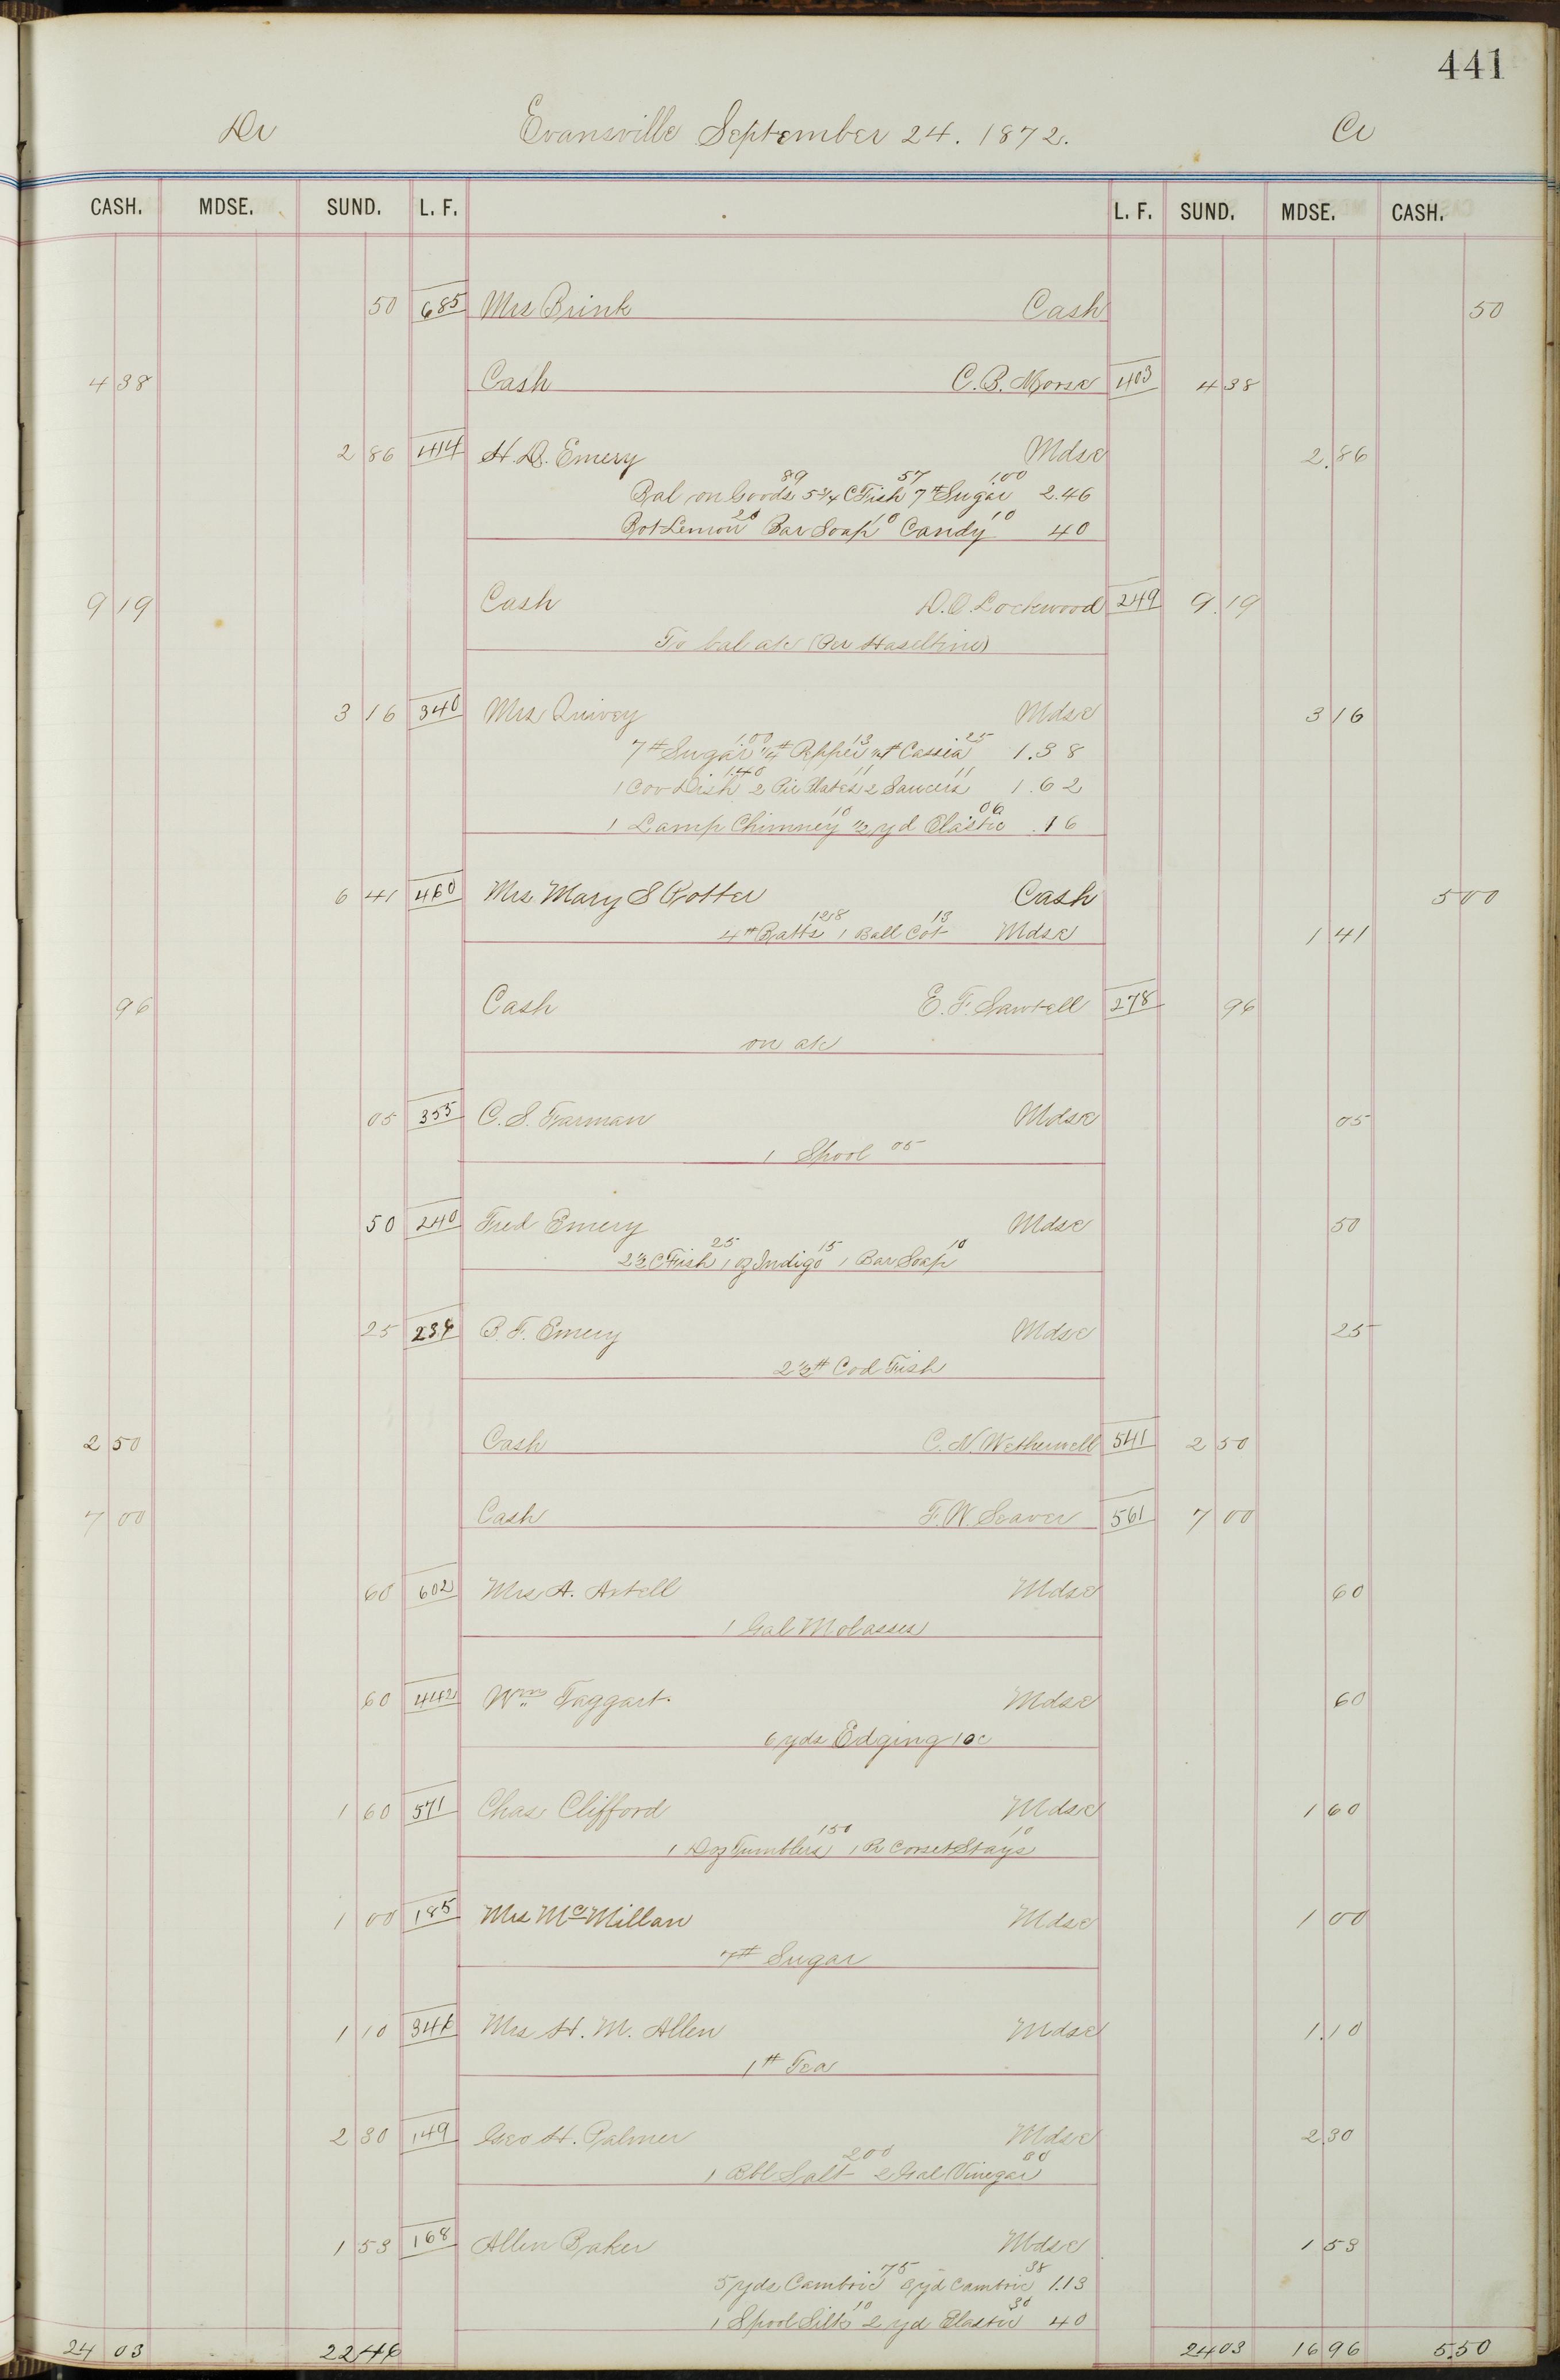 441
Dr Evansville September 24. 1872. Cr
CASH. MDSE. SUND. L. F. L. F. SUND. MDSE. CASH.
50 685 Mrs Brink Cash 50
4 38 Cash C. B. Morse 403 4 38
2 86 414 H. D. Emery Mdse 2.86
89 57 1.00
Bal on Goods 5 3/4 C Fish 7# Sugar 2.46
20 10 10
Bot Lemon Bar Soap Candy 40
9 19 Cash D. O. Lockwood 249 9.19
To bal a/c (Per Haseltine)
3 16 340 Mrs Quivey Mdse 3 16
1.00 13 25
7# Sugar 1/4# Pepper 1/2# Cassia 1.38
1.40 11 11
1 Cov Dish 2 Pie Plates 2 Saucers 1.62
10 06
1 Lamp Chimney 1/2 yd Elastic .16
6 41 460 Mrs Mary S Potter Cash 5 00
128 13
4# Batts 1 Ball Cot Mdse 1 41
96 Cash E. F. Sawtell 278 96
on a/c
05 355 C. S. Farman Mdse 05
1 Spool 05
50 240 Fred Emery Mdse 50
25 15 10
2 1/2 C Fish 1 oz Indigo 1 Bar Soap
25 234 B. F. Emery Mdse 25
2 1/2# Cod Fish
2 50 Cash C. N. Wetherwell 541 2 50
7 00 Cash F. W. Seaver 561 7 00
60 602 Mrs A. Axtell Mdse 60
1 Gal Molasses
60 442 Wm Taggart. Mdse 60
6 yds Edging 10c
1 60 571 Chas Clifford Mdse 1 60
150 10
1 Doz Tumblers 1 Pr Corset Stays
1 00 185 Mrs McMillan Mdse 1 00
7# Sugar
1 10 346 Mrs H. M. Allen Mdse 1.10
1# Tea
2 30 149 Geo H. Palmer Mdse 2.30
200 30
1 Bbl Salt 2 Gal Vinegar
1 53 168 Allen Baker Mdse 1 53
.75 38
5 yds Cambric 3 yd Cambric 1.13
10 30
1 Spool Silk 2 yd Elastic 40
24 03 22 46 24 03 16 96 5.50